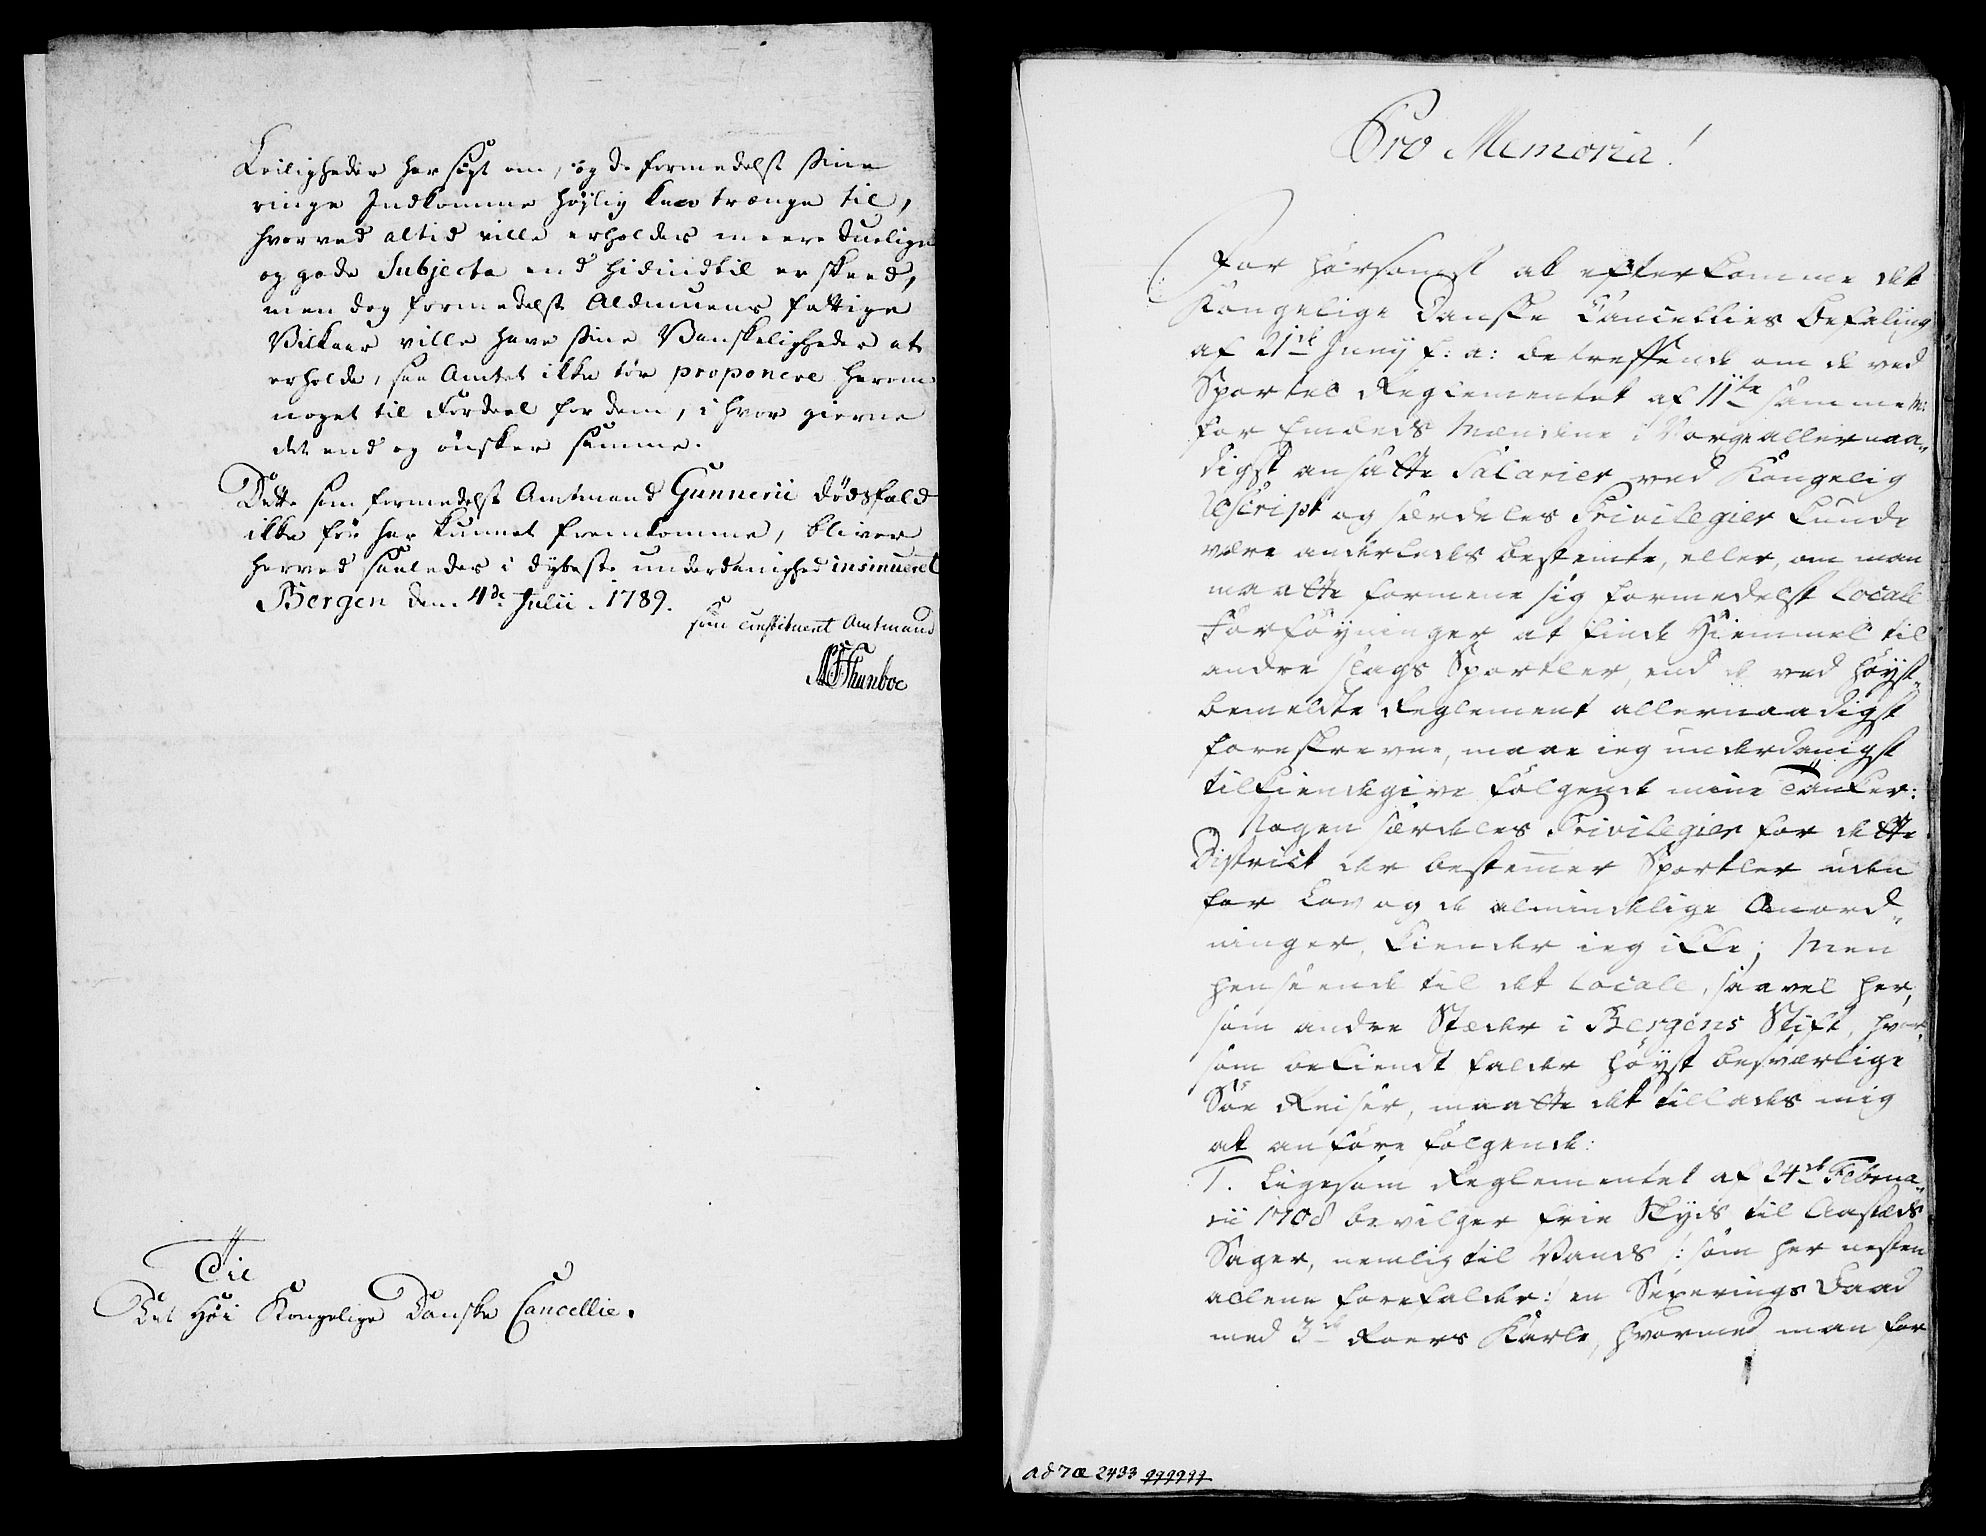 Leiligheder har søgt om, og de formedelst sine
ringe Indkomme højlig kan trænge til,
hvorved altid ville erholdes meere duelige
og gode Subjecta end hidindtil er skeed,
men dog formedelst Almuens fattige
Vilkaar ville have sine Vanskeligheder at
erholde, saa Amtet ikke tør proponere herom
noget til Fordeel for dem, i hvor gierne
det end og ønsker samme.
Dette som formedelst Amtmand Gunnerii Dødsfald
ikke før har kunnet fremkomme, bliver
herved saaledes i dybeste underdanighed insinueret
Bergen den 4de Julii 1789.
som constitueret Amtmand
Thunboe
Til
Det Høi Kongelige Danske Cancellie.
Pro Memoria!
For hørsomst at efterkomme det
Kongelige Danske Cancellies Befaling
af 21de Junij f: a: betreffende om de ved
Sportel Reglementet af 11te samme M:
for Embeds Mændene i Norge allernaa„
digst ansatte Salarier ved Kongelig
Rescript og særdeles Privilegier kunde
være anderledes bestemte, eller, om man
maatte formene sig formedelst Locale
Forføyninger at finde Hiemmel til
andre slags Sportler, end de ved høyst„
bemeldte Reglement allernaadigst
foreskrevne, maae ieg underdanigst
tilkiendegive følgende mine Tanker:
Nogen særdeles Privilegier for dette
District der bestemmer Sportler uden
for Lov og de almindelige Anord„
ninger, kiender ieg ikke; Men
henseende til det Locale, saavel her,
som andre Stæder i Bergens Stift, hvor,
som bekiendt falder høyst besværlige
Søe Reiser, maatte det tillades mig
at anføre følgende:
1. Ligesom Reglementet af 24de Februa„
rii 1708 bevilger frie Skyds til Aasteds
Sager, nemlig til Vands /: som her nesten
allene forefalder :/ en Sexerings Baad
med 3de Roers Karle, hvormed man for
ad No 2433